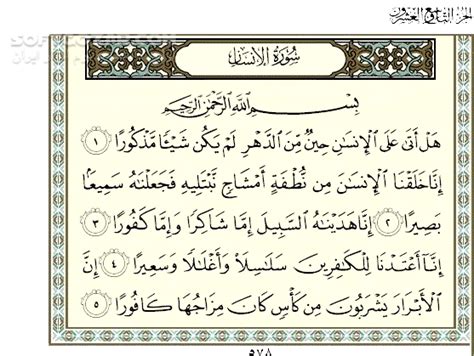 الجزء التاسع والعشرون
سورة الإنسان
بِسْمِ ٱللَّهِ ٱلرَّحْمَٰنِ ٱلرَّحِيمِ
هَلْ أَتَىٰ عَلَى ٱلْإِنسَٰنِ حِينٌ مِّنَ ٱلدَّهْرِ لَمْ يَكُن شَيْـًٔا مَّذْكُورًا ١
إِنَّا خَلَقْنَا ٱلْإِنسَٰنَ مِن نُّطْفَةٍ أَمْشَاجٍ نَّبْتَلِيهِ فَجَعَلْنَٰهُ سَمِيعًۢا
بَصِيرًا ٢ إِنَّا هَدَيْنَٰهُ ٱلسَّبِيلَ إِمَّا شَاكِرًا وَإِمَّا كَفُورًا ٣
إِنَّآ أَعْتَدْنَا لِلْكَٰفِرِينَ سَلَٰسِلَا۟ وَأَغْلَٰلًا وَسَعِيرًا ٤ إِنَّ
ٱلْأَبْرَارَ يَشْرَبُونَ مِن كَأْسٍ كَانَ مِزَاجُهَا كَافُورًا ٥
٥٧٨